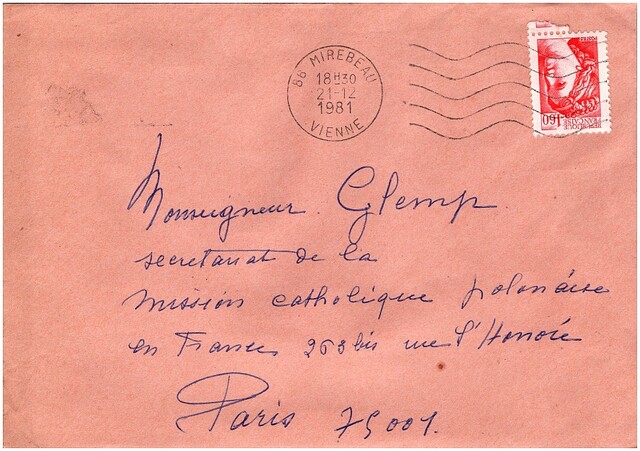 86 MIREBEAU
18H30
21-12
1981
VIENNE
1,60
REPUBLIQUE
FRANÇAISE
POSTES
Monseigneur Glemp
secretariat de la
mission catholique polonaise
en France 263 bis rue St Honoré
Paris 75001.